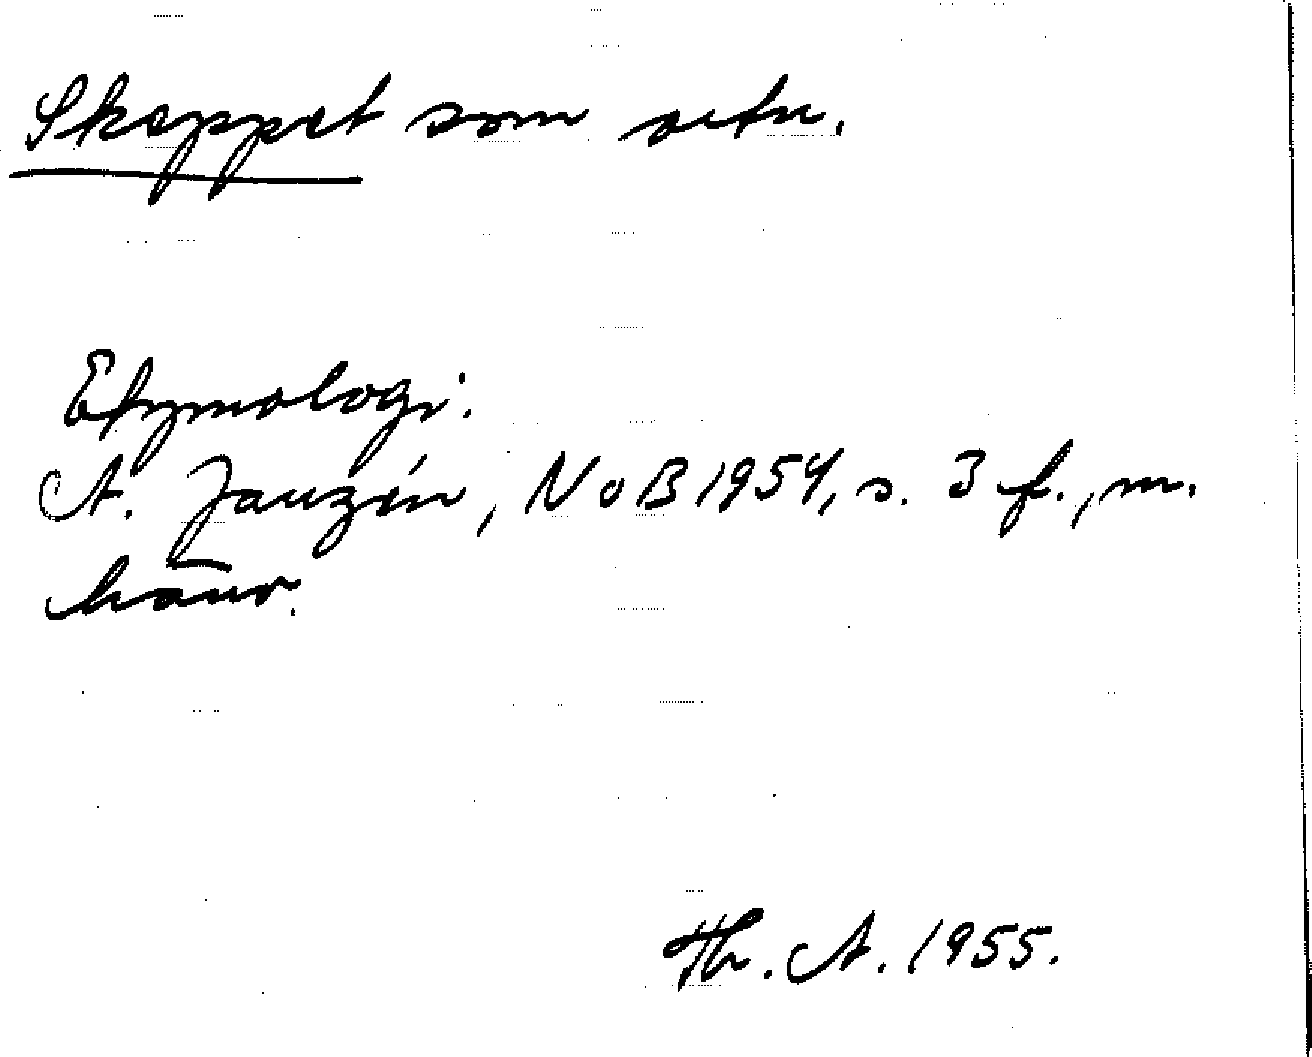 Skeppet som ortn.
Etymologi:
A. Janzén, NoB 1954, s. 3 f., m.
hänv.
Th. A. 1955.